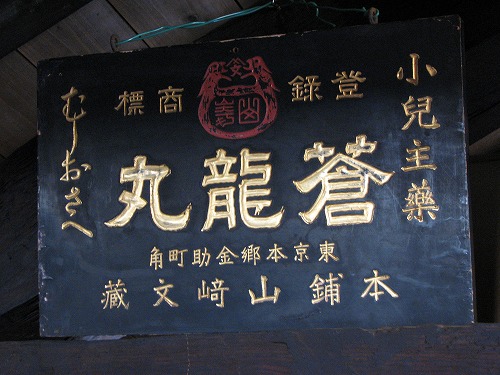 小兒主藥
登錄商標
蒼龍丸
むしおさへ
東京本郷金助町角
本鋪山﨑文藏